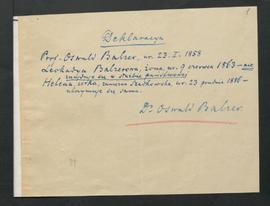 Deklaracya
Prof. Oswald Balzer, ur. 23. I. 1858
Leokadya Balzerowa, żona, ur. 9 czerwca 1863 – nie
znajduje się w służbie państwowej
Helena, córka, zamężna Sadkowska, ur. 23 grudnia 1886 –
utrzymuje się sama.
Dr. Oswald Balzer.